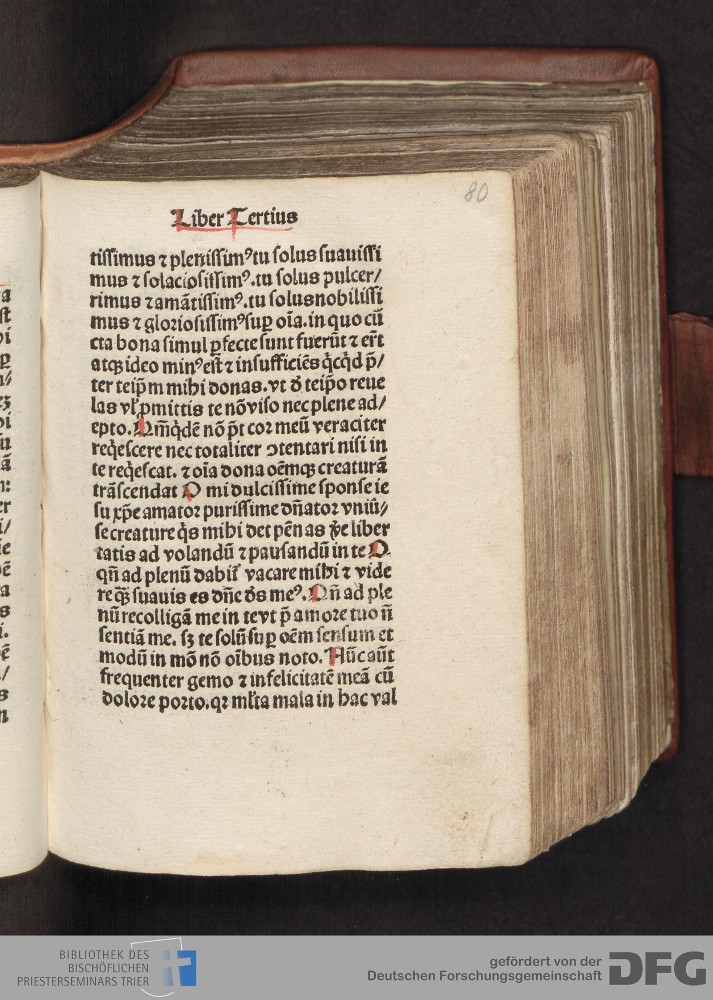 80
Liber Tertius
tissimus ⁊ plenissimꝰ tu solus suauissi
mus ⁊ solaciosissimꝰ. tu solus pulcer/
rimus ⁊ amãtissimꝰ. tu solus nobilissi
mus ⁊ gloriosissimꝰ suꝑ oĩa. in quo cũ
cta bona simul ꝑfecte sunt fuerũt ⁊ ert̃
atqꝫ ideo minꝰ est ⁊ insufficiẽs q̃cq̃d p̃/
ter teip̃m mihi donas. vt ð teip̃o reue
las vl̕ ꝓmittis te nõ viso nec plene ad/
epto. Nm̃ q̃dẽ nõ p̃t cor meũ veraciter
req̃escere nec totaliter ɔtentari nisi in
te req̃escat. ⁊ oĩa dona oẽmqꝫ creaturã
trãscendat O mi dulcissime sponse ie
su xp̃e amator purissime dñator vniũ⸗
se creature q̃s mihi det pẽnas v̾e liber
tatis ad volandũ ⁊ pausandũ in te O
qñ ad plenũ dabit̃ vacare mihi ⁊ vide
re qꝫ̃ suauis es dñe ðs meꝰ. Qñ ad ple
nũ recolligã me in te vt p̃ amore tuo ñ
sentiã me. sꝫ te solũ suꝑ oẽm sensum et
modũ in mõ nõ oĩbus noto. Nũc aũt
frequenter gemo ⁊ infelicitatẽ meã cũ
dolore porto. qꝛ ml̕ta mala in hac val
BIBLIOTHEK DES
BISCHÖFLICHEN
PRIESTERSEMINARS TRIER
gefördert von der
Deutschen Forschungsgemeinschaft
DFG